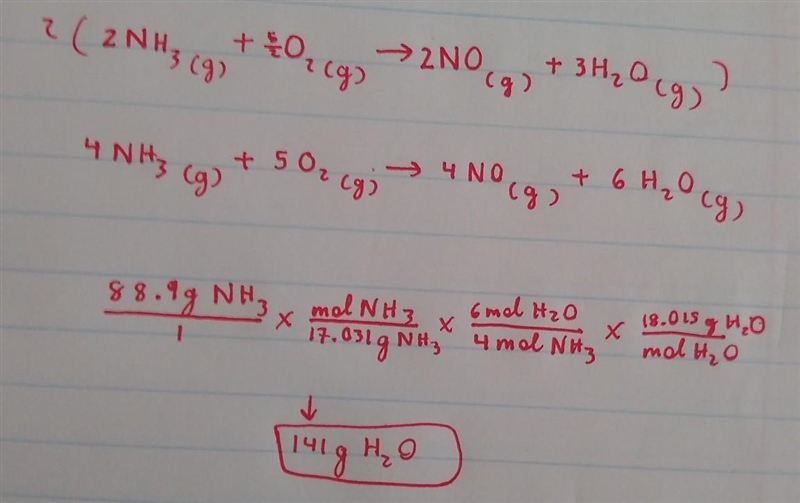 2 ( 2NH₃(g) + 5/2 O₂(g) → 2NO(g) + 3H₂O(g) )
4NH₃(g) + 5O₂(g) → 4NO(g) + 6H₂O(g)
88.9g NH₃ / 1 × mol NH₃ / 17.031g NH₃ × 6 mol H₂O / 4 mol NH₃ × 18.015 g H₂O / mol H₂O
↓
141g H₂O